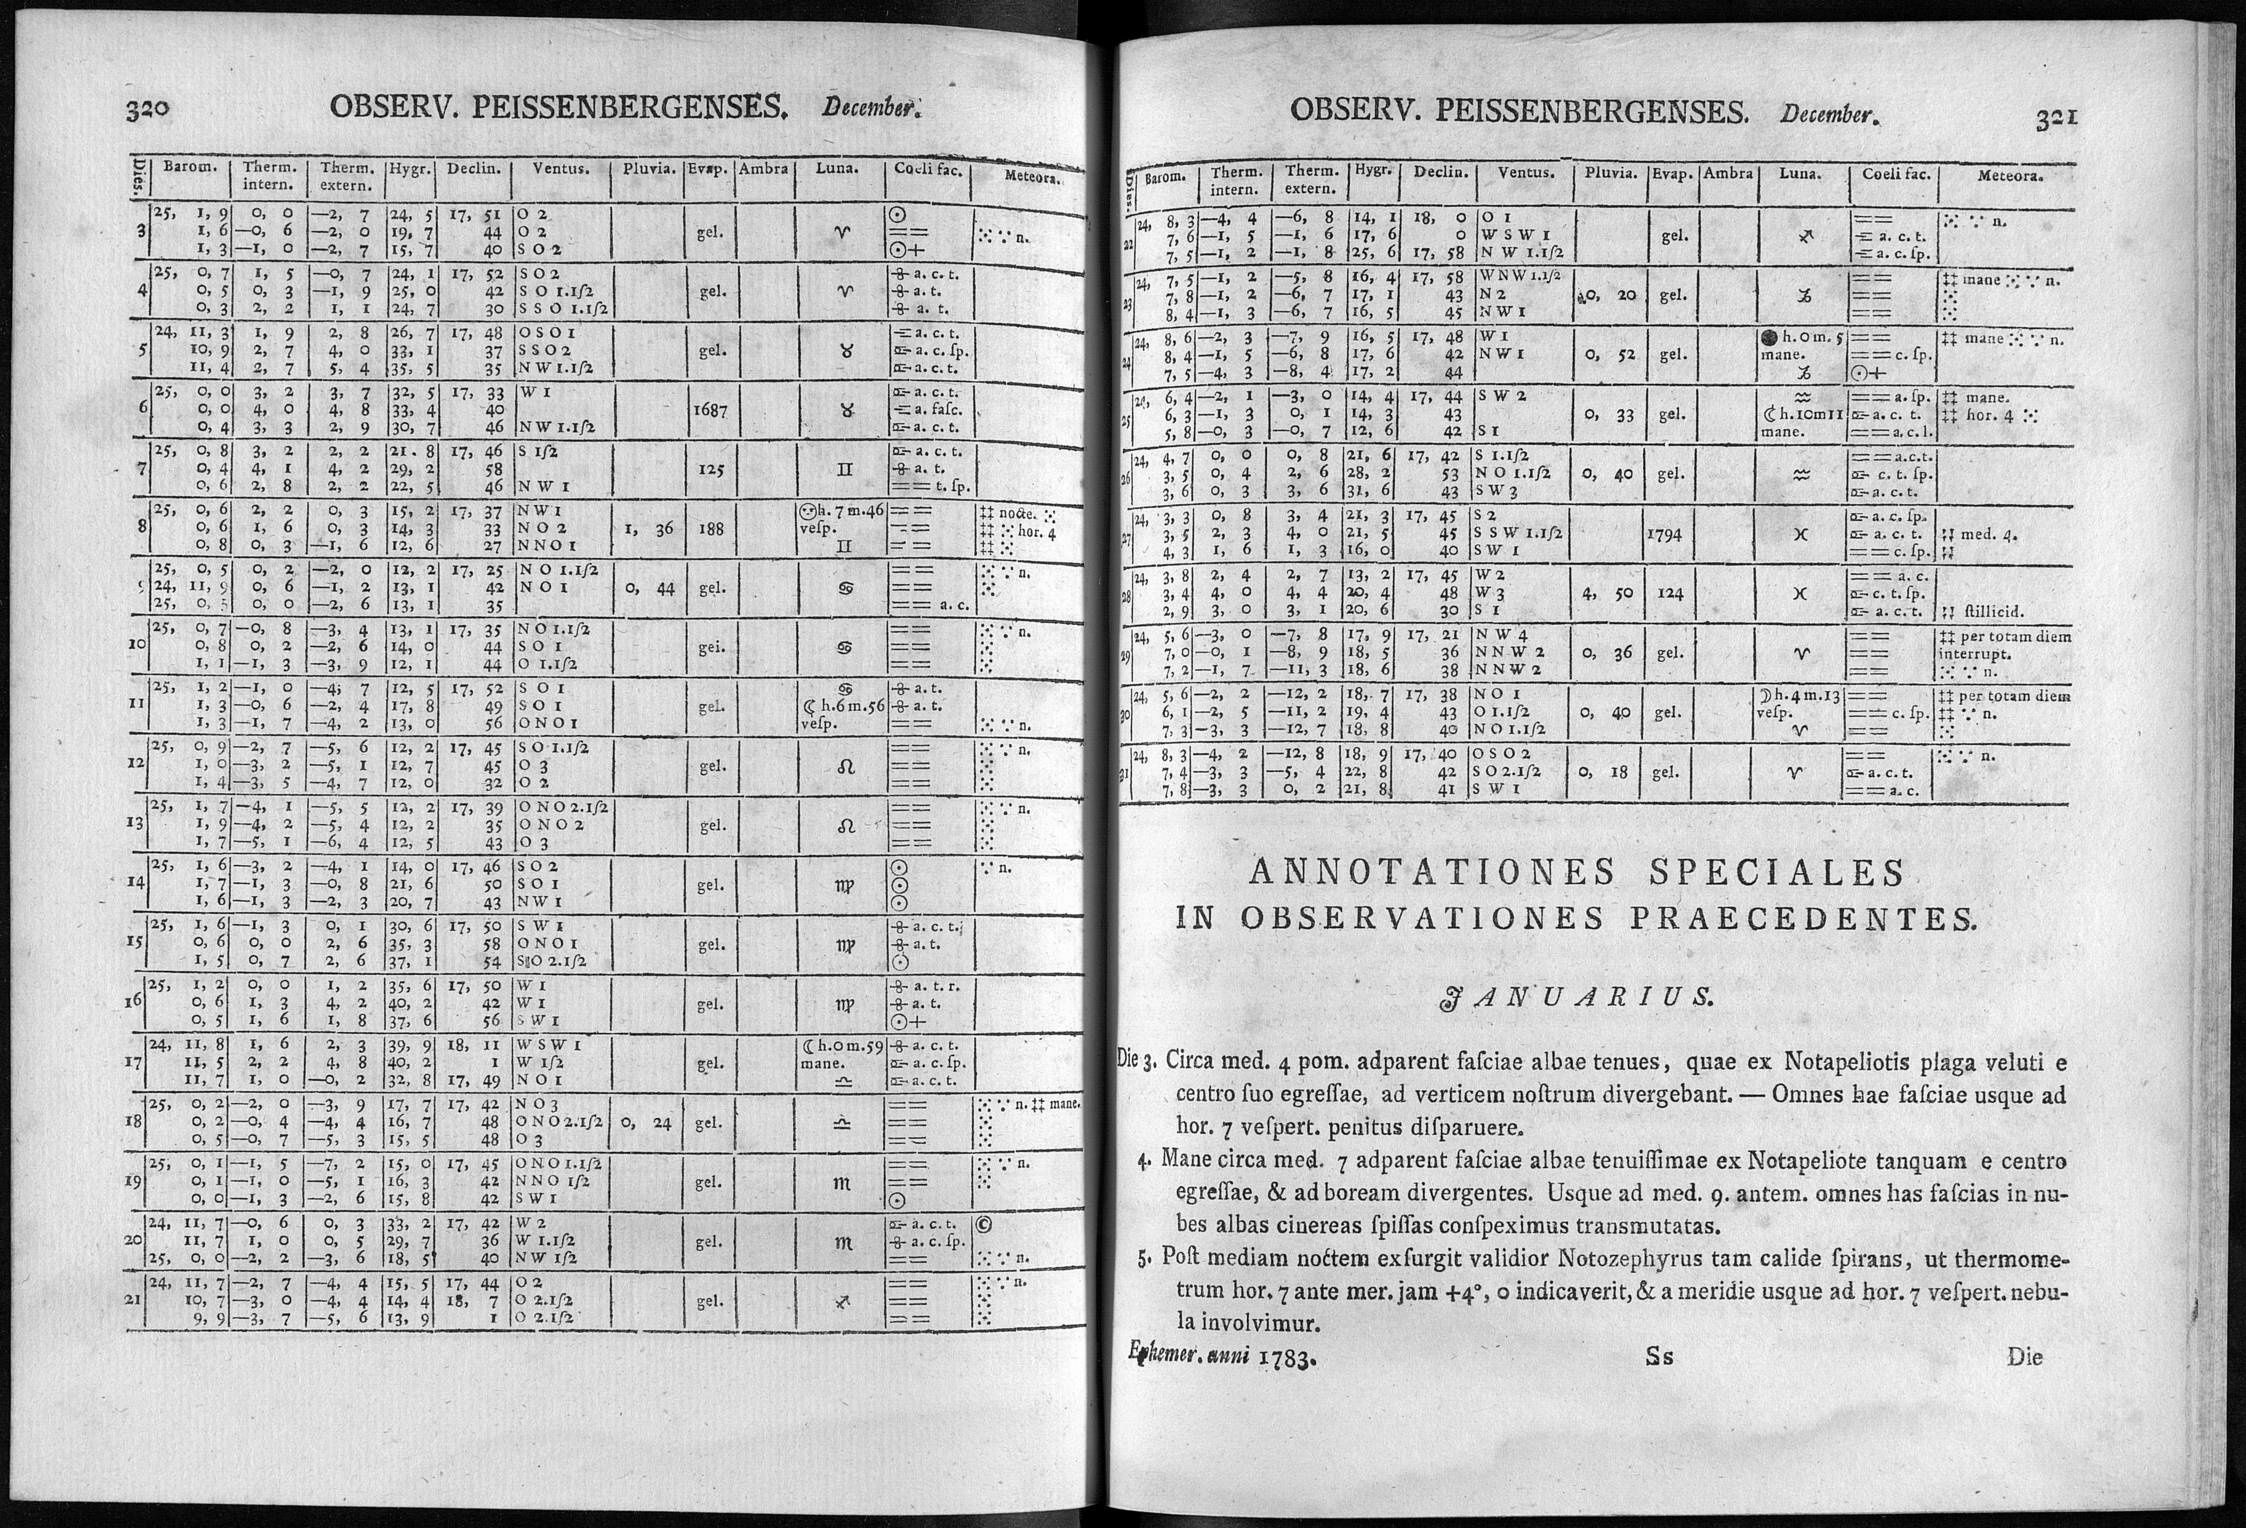 320 OBSERV. PEISSENBERGENSES. December.
Dies. Barom. Therm. intern. Therm. extern. Hygr. Declin. Ventus. Pluvia. Evap. Ambra Luna. Coeli fac. Meteora.
25, 1, 9 0, 0 —2, 7 24, 5 17, 51 O 2 ☉
3 1, 6 —0, 6 —2, 0 19, 7 44 O 2 gel. ♈ == ⁙ ∵ n.
1, 3 —1, 0 —2, 7 15, 7 40 S O 2 ☉+
25, 0, 7 1, 5 —0, 7 24, 1 17, 52 S O 2 a. c. t.
4 0, 5 0, 3 —1, 9 25, 0 42 S O 1.1ſ2 gel. ♈ a. t.
0, 3 2, 2 1, 1 24, 7 30 S S O 1.1ſ2 a. t.
24, 11, 3 1, 9 2, 8 26, 7 17, 48 O S O 1 a. c. t.
5 10, 9 2, 7 4, 0 33, 1 37 S S O 2 gel. ♉ a. c. ſp.
11, 4 2, 7 5, 4 35, 5 35 N W 1.1ſ2 a. c. t.
25, 0, 0 3, 2 3, 7 32, 5 17, 33 W 1 a. c. t.
6 0, 0 4, 0 4, 8 33, 4 40 1687 ♉ a. faſc.
0, 4 3, 3 2, 9 30, 7 46 N W 1.1ſ2 a. c. t.
25, 0, 8 3, 2 2, 2 21. 8 17, 46 S 1ſ2 a. c. t.
7 0, 4 4, 1 4, 2 29, 2 58 125 ♊ a. t.
0, 6 2, 8 2, 2 22, 5 46 N W 1 == t. ſp.
25, 0, 6 2, 2 0, 3 15, 2 17, 37 N W 1 h. 7 m. 46 == ‡‡ nocte. ⁙
8 0, 6 1, 6 0, 3 14, 3 33 N O 2 1, 36 188 veſp. == ‡‡ ⁙ hor. 4
0, 8 0, 3 —1, 6 12, 6 27 N N O 1 ♊ == ‡‡ ⁙
25, 0, 5 0, 2 —2, 0 12, 2 17, 25 N O 1.1ſ2 == ⁙ ∵ n.
9 24, 11, 9 0, 6 —1, 2 13, 1 42 N O 1 0, 44 gel. ♋ == ⁙
25, 0, 0, 0 —2, 6 13, 1 35 == a. c.
25, 0, 7 —0, 8 —3, 4 13, 1 17, 35 N O 1.1ſ2 == ⁙ ∵ n.
10 0, 8 0, 2 —2, 6 14, 0 44 S O 1 gei. ♋ == ⁙
1, 1 —1, 3 —3, 9 12, 1 44 O 1.1ſ2 == ⁙
25, 1, 2 —1, 0 —4, 7 12, 5 17, 52 S O 1 ♋ a. t.
11 1, 3 —0, 6 —2, 4 17, 8 49 S O 1 gel. ☾ h. 6 m. 56 a. t.
1, 3 —1, 7 —4, 2 13, 0 56 O N O 1 veſp. == ⁙ ∵ n.
25, 0, 9 —2, 7 —5, 6 12, 2 17, 45 S O 1.1ſ2 == ⁙ ∵ n.
12 1, 0 —3, 2 —5, 1 12, 7 45 O 3 gel. ♌ == ⁙
1, 4 —3, 5 —4, 7 12, 0 32 O 2 == ⁙
25, 1, 7 —4, 1 —5, 5 12, 2 17, 39 O N O 2.1ſ2 == ⁙ ∵ n.
13 1, 9 —4, 2 —5, 4 12, 2 35 O N O 2 gel. ♌ == ⁙
1, 7 —5, 1 —6, 4 12, 5 43 O 3 == ⁙
25, 1, 6 —3, 2 —4, 1 14, 0 17, 46 S O 2 ☉ ∵ n.
14 1, 7 —1, 3 —0, 8 21, 6 50 S O 1 gel. ♍ ☉
1, 6 —1, 3 —2, 3 20, 7 43 N W 1 ☉
25, 1, 6 —1, 3 0, 1 30, 6 17, 50 S W 1 a. c. t.
15 0, 6 0, 0 2, 6 35, 3 58 O N O 1 gel. ♍ a. t.
1, 5 0, 7 2, 6 37, 1 54 S O 2.1ſ2 ☉
25, 1, 2 0, 0 1, 2 35, 6 17, 50 W 1 a. t. r.
16 0, 6 1, 3 4, 2 40, 2 42 W 1 gel. ♍ a. t.
0, 5 1, 6 1, 8 37, 6 56 S W 1 ☉+
24, 11, 8 1, 6 2, 3 39, 9 18, 11 W S W 1 ☾ h. 0 m. 59 a. c. t.
17 11, 5 2, 2 4, 8 40, 2 1 W 1ſ2 gel. mane. a. c. ſp.
11, 7 1, 0 —0, 2 32, 8 17, 49 N O 1 ♎ a. c. t.
25, 0, 2 —2, 0 —3, 9 17, 7 17, 42 N O 3 == ⁙ ∵ n. ‡‡ mane.
18 0, 2 —0, 4 —4, 4 16, 7 48 O N O 2.1ſ2 0, 24 gel. ♎ == ⁙
0, 5 —0, 7 —5, 3 15, 5 48 O 3 == ⁙
25, 0, 1 —1, 5 —7, 2 15, 0 17, 45 O N O 1.1ſ2 == ⁙ ∵ n.
19 0, 1 —1, 0 —5, 1 16, 3 42 N N O 1ſ2 gel. ♏ == ⁙
0, 0 —1, 3 —2, 6 15, 8 42 S W 1 ☉
24, 11, 7 —0, 6 0, 3 33, 2 17, 42 W 2 a. c. t. ©
20 11, 7 1, 0 0, 5 29, 7 36 W 1.1ſ2 gel. ♏ a. c. ſp.
25, 0, 0 —2, 2 —3, 6 18, 5 40 N W 1ſ2 == ⁙ ∵ n.
24, 11, 7 —2, 7 —4, 4 15, 5 17, 44 O 2 == ⁙ ∵ n.
21 10, 7 —3, 0 —4, 4 14, 4 18, 7 O 2.1ſ2 gel. ♐ == ⁙
9, 9 —3, 7 —5, 6 13, 9 1 O 2.1ſ2 == ⁙
OBSERV. PEISSENBERGENSES. December. 321
Dies. Barom. Therm. intern. Therm. extern. Hygr. Declin. Ventus. Pluvia. Evap. Ambra Luna. Coeli fac. Meteora.
24, 8, 3 —4, 4 —6, 8 14, 1 18, 0 O 1 == ⁙ ∵ n.
22 7, 6 —1, 5 —1, 6 17, 6 0 W S W 1 gel. ♐ a. c. t.
7, 5 —1, 2 —1, 8 25, 6 17, 58 N W 1.1ſ2 a. c. ſp.
24, 7, 5 —1, 2 —5, 8 16, 4 17, 58 W N W 1.1ſ2 == ‡‡ mane ⁙ ∵ n.
23 7, 8 —1, 2 —6, 7 17, 1 43 N 2 0, 20 gel. ♑ == ⁙
8, 4 —1, 3 —6, 7 16, 5 45 N W 1 == ⁙
24, 8, 6 —2, 3 —7, 9 16, 5 17, 48 W 1 ● h. 0 m. 5 == ‡‡ mane ⁙ ∵ n.
24 8, 4 —1, 5 —6, 8 17, 6 42 N W 1 0, 52 gel. mane. == c. ſp.
7, 5 —4, 3 —8, 4 17, 2 44 ♑ ☉+
24, 6, 4 —2, 1 —3, 0 14, 4 17, 44 S W 2 ♒ == a. ſp. ‡‡ mane.
25 6, 3 —1, 3 0, 1 14, 3 43 0, 33 gel. ☾ h. 10 m 11 a. c. t. ‡‡ hor. 4 ⁙
5, 8 —0, 3 —0, 7 12, 6 42 S 1 mane. == a. c. l.
24, 4, 7 0, 0 0, 8 21, 6 17, 42 S 1.1ſ2 == a. c. t.
26 3, 5 0, 4 2, 6 28, 2 53 N O 1.1ſ2 0, 40 gel. ♒ c. t. ſp.
3, 6 0, 3 3, 6 31, 6 43 S W 3 a. c. t.
24, 3, 3 0, 8 3, 4 21, 3 17, 45 S 2 a. c. ſp.
27 3, 5 2, 3 4, 0 21, 5 45 S S W 1.1ſ2 1794 ♓ a. c. t. med. 4.
4, 3 1, 6 1, 3 16, 0 40 S W 1 == c. ſp.
24, 3, 8 2, 4 2, 7 13, 2 17, 45 W 2 == a. c.
28 3, 4 4, 0 4, 4 20, 4 48 W 3 4, 50 124 ♓ c. t. ſp.
2, 9 3, 0 3, 1 20, 6 30 S 1 a. c. t. ſtillicid.
24, 5, 6 —3, 0 —7, 8 17, 9 17, 21 N W 4 == ‡‡ per totam diem
29 7, 0 —0, 1 —8, 9 18, 5 36 N N W 2 0, 36 gel. ♈ == interrupt.
7, 2 —1, 7 —11, 3 18, 6 38 N N W 2 == ⁙ ∵ n.
24, 5, 6 —2, 2 —12, 2 18, 7 17, 38 N O 1 ☽ h. 4 m. 13 == ‡‡ per totam diem
30 6, 1 —2, 5 —11, 2 19, 4 43 O 1.1ſ2 0, 40 gel. veſp. == c. ſp. ‡‡ ∵ n.
7, 3 —3, 3 —12, 7 18, 8 40 N O 1.1ſ2 ♈ == ⁙
24, 8, 3 —4, 2 —12, 8 18, 9 17, 40 O S O 2 == ⁙ ∵ n.
31 7, 4 —3, 3 —5, 4 22, 8 42 S O 2.1ſ2 0, 18 gel. ♈ a. c. t.
7, 8 —3, 3 0, 2 21, 8 41 S W 1 == a. c.
ANNOTATIONES SPECIALES
IN OBSERVATIONES PRAECEDENTES.
JANUARIUS.
Die 3. Circa med. 4 pom. adparent faſciae albae tenues, quae ex Notapeliotis plaga veluti e
centro ſuo egreſſae, ad verticem noſtrum divergebant. — Omnes hae faſciae usque ad
hor. 7 veſpert. penitus diſparuere.
4. Mane circa med. 7 adparent faſciae albae tenuiſſimae ex Notapeliote tanquam e centro
egreſſae, & ad boream divergentes. Usque ad med. 9. antem. omnes has faſcias in nu-
bes albas cinereas ſpiſſas conſpeximus transmutatas.
5. Poſt mediam noctem exſurgit validior Notozephyrus tam calide ſpirans, ut thermome-
trum hor. 7 ante mer. jam +4°, 0 indicaverit, & a meridie usque ad hor. 7 veſpert. nebu-
la involvimur.
Ephemer. anni 1783. Ss Die